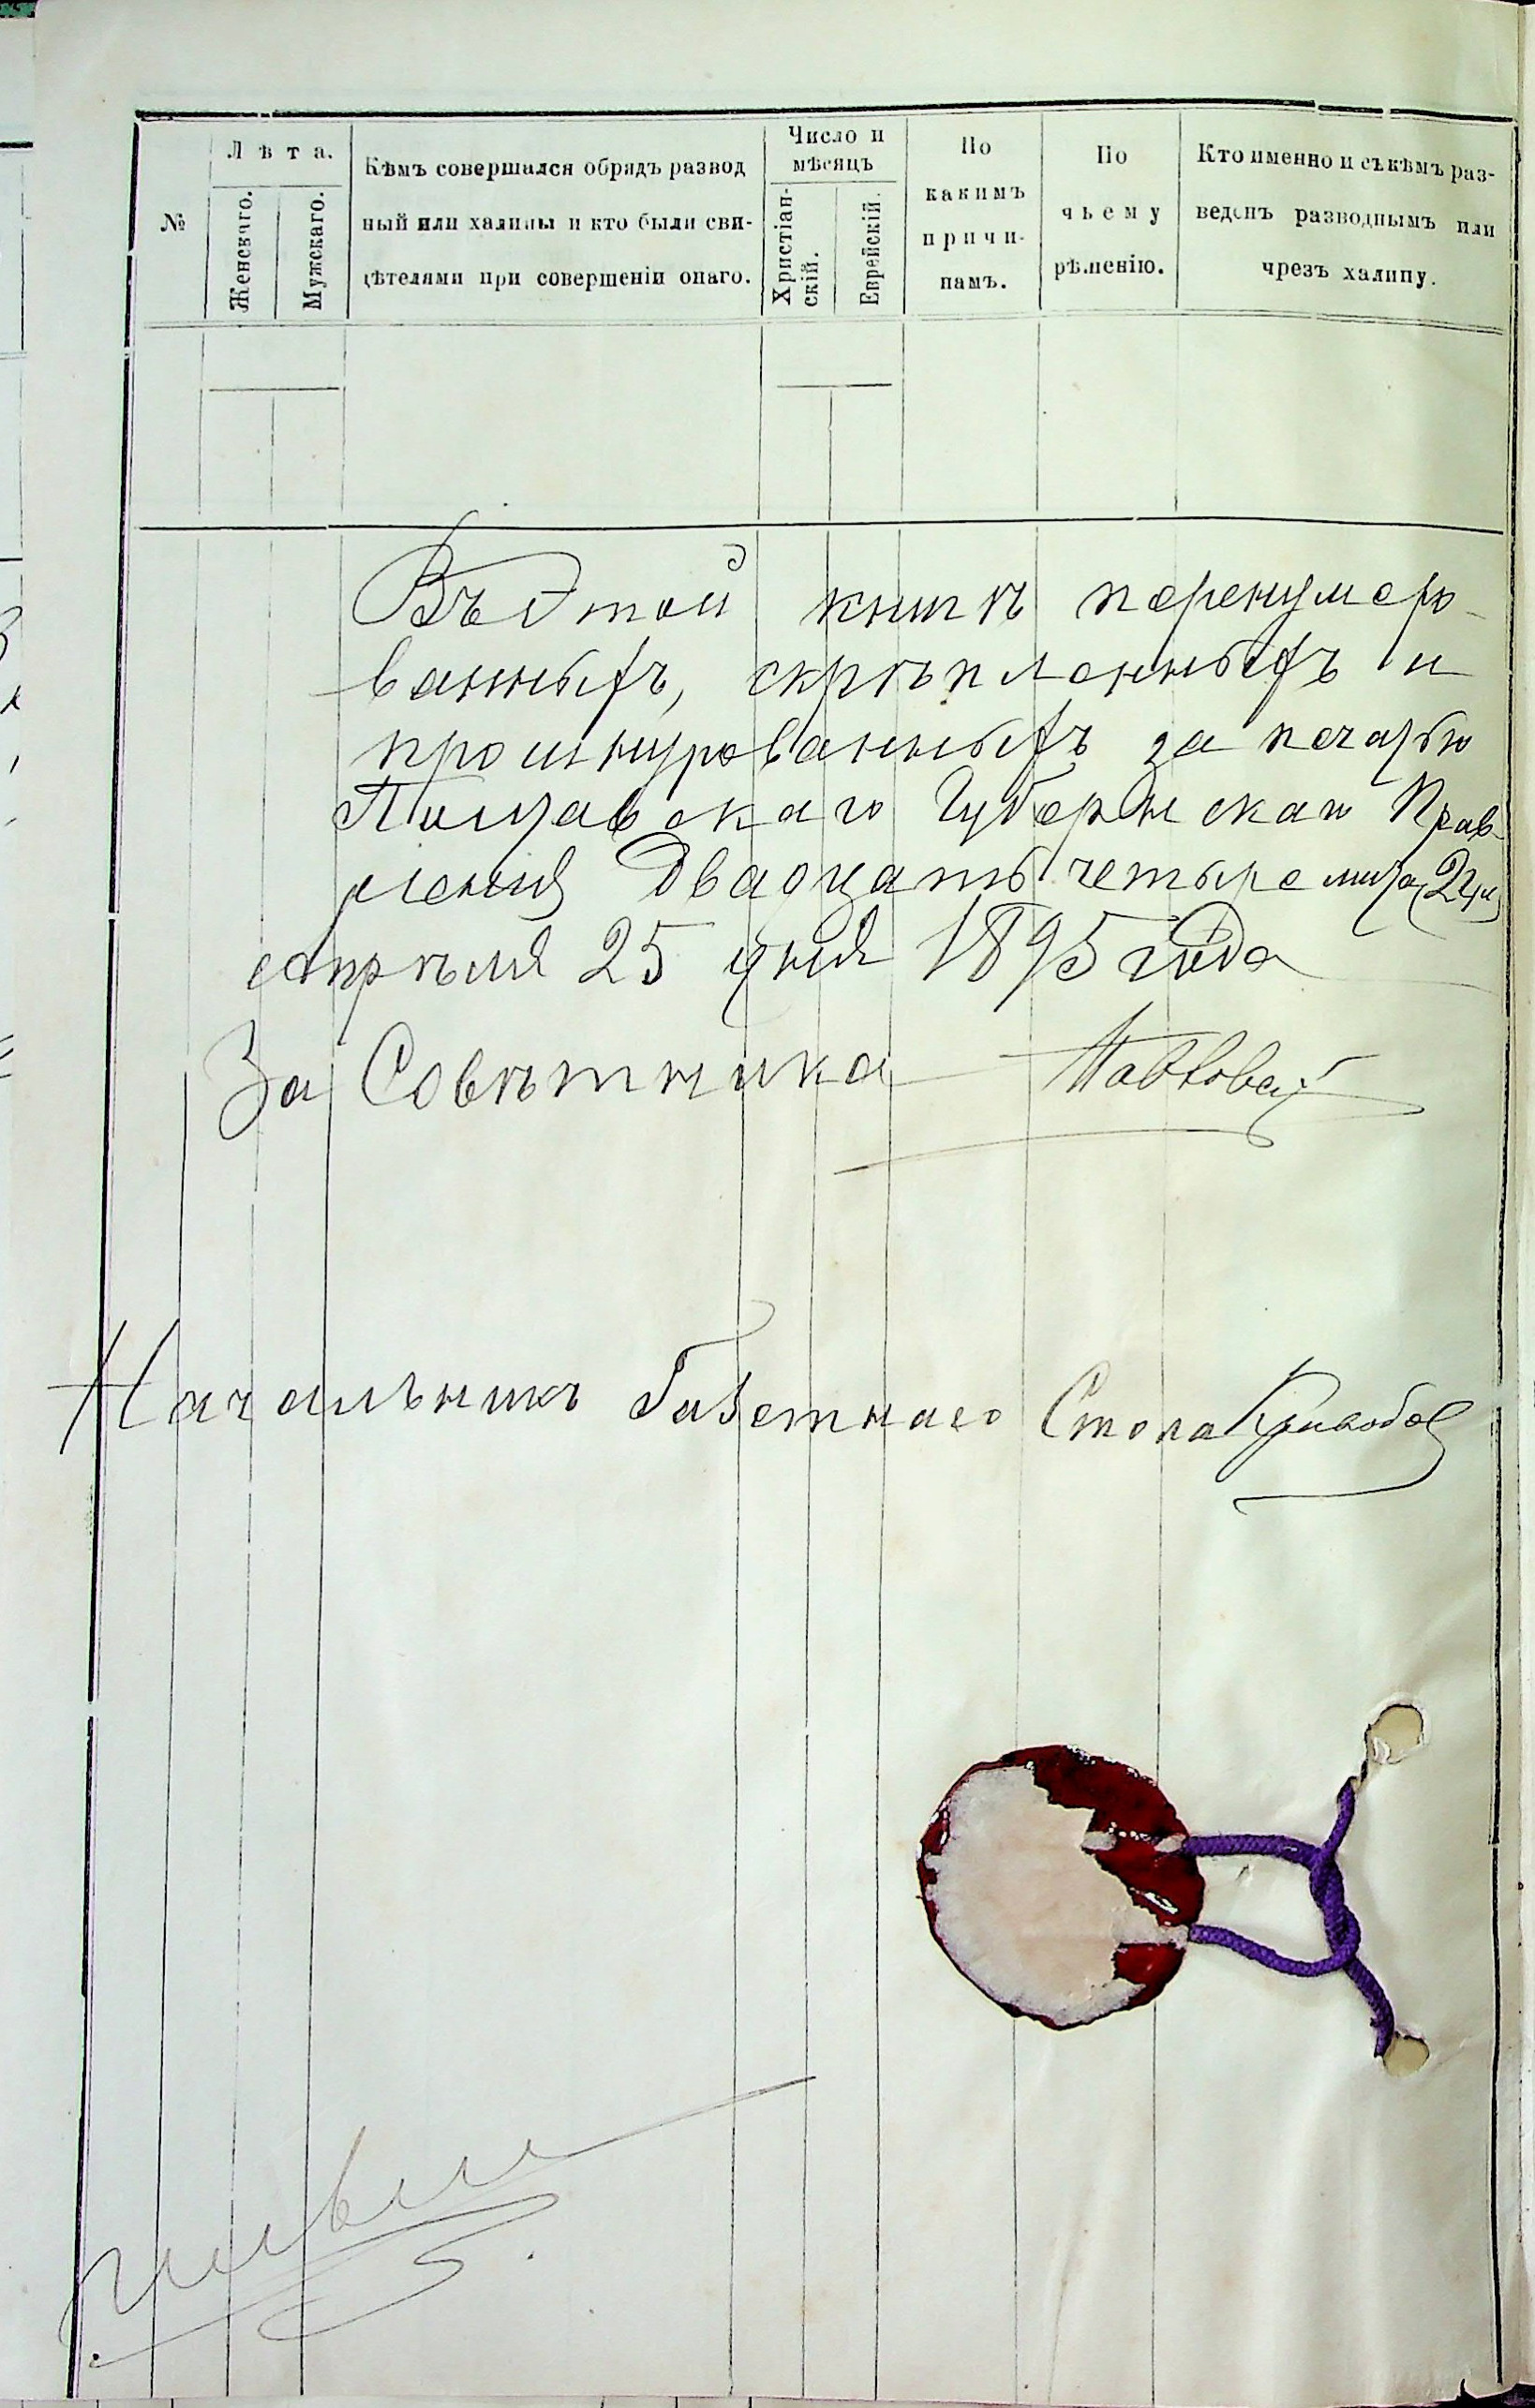 №
Лѣта.
Женскаго.
Мужскаго.
Кѣмъ совершался обрядъ развод
ный или халицы и кто были сви-
дѣтелями при совершеніи онаго.
Число и
мѣсяцъ
Христіан-
скій.
Еврейскій.
По
какимъ
причи-
намъ.
По
чьему
рѣшенію.
Кто именно и съ кѣмъ раз-
веденъ разводнымъ или
чрезъ халицу.
Въ этой книгѣ перенумеро-
ванныхъ, скрѣпленныхъ и
прошнурованныхъ за печатью
Полтавскаго Губернскаго Прав-
ленія двадцать четыре листа (24 л)
апрѣля 25 дня 1895 года
За Совѣтника
Начальникъ Газетнаго Стола